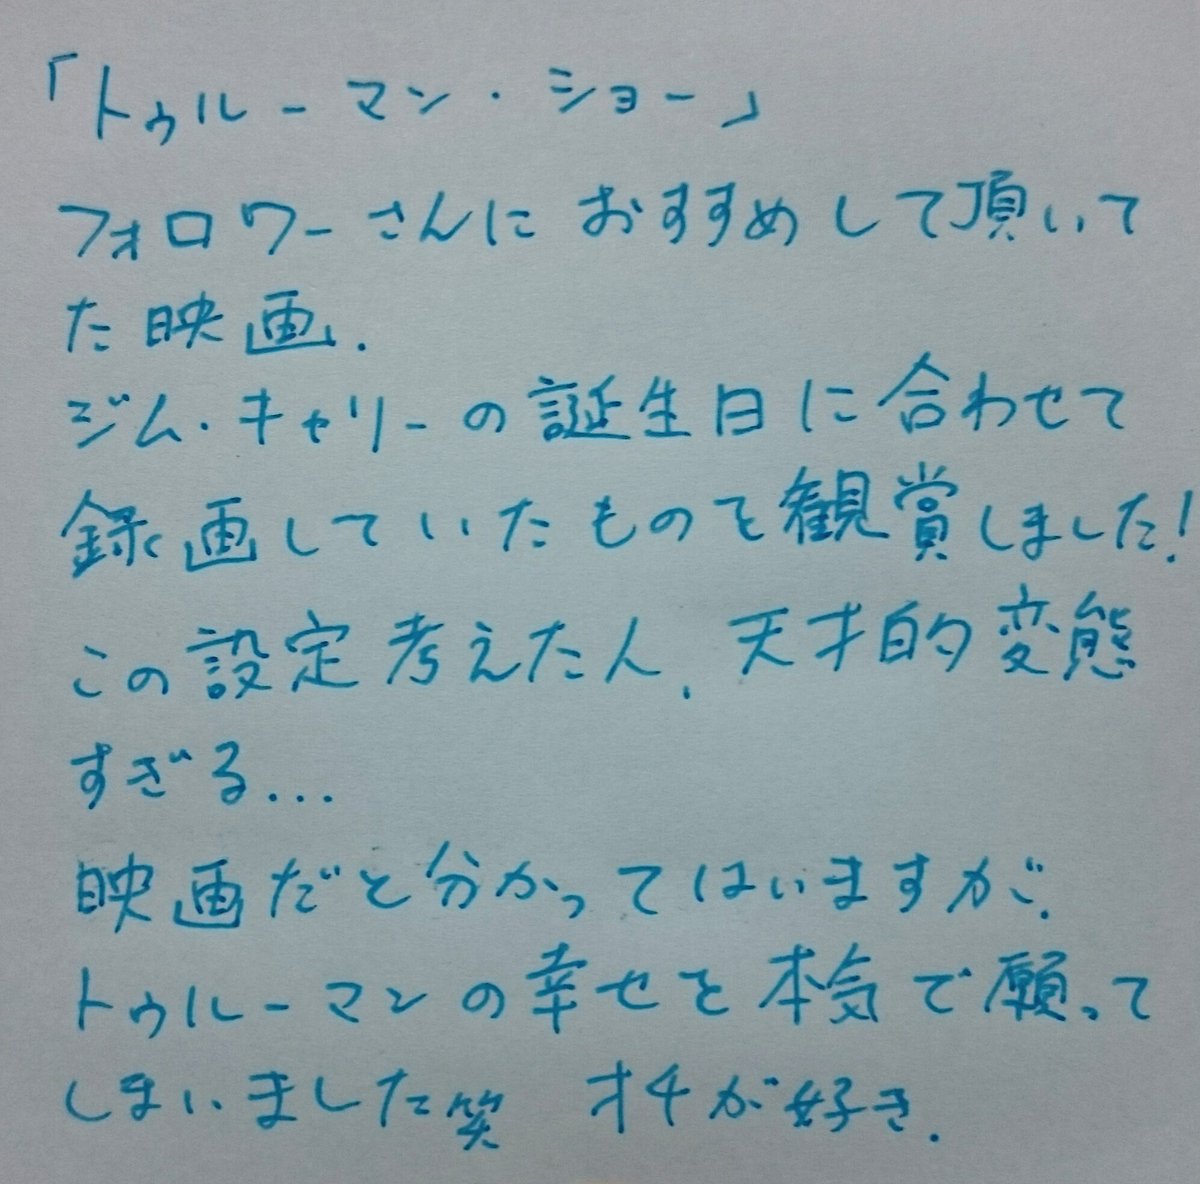 「トゥルーマン・ショー」
フォロワーさんにおすすめして頂いて
た映画.
ジム・キャリーの誕生日に合わせて
録画していたものを観賞しました!
この設定考えた人、天才的変態
すぎる...
映画だと分かってはいますが、
トゥルーマンの幸せを本気で願って
しまいました笑 オチが好き.